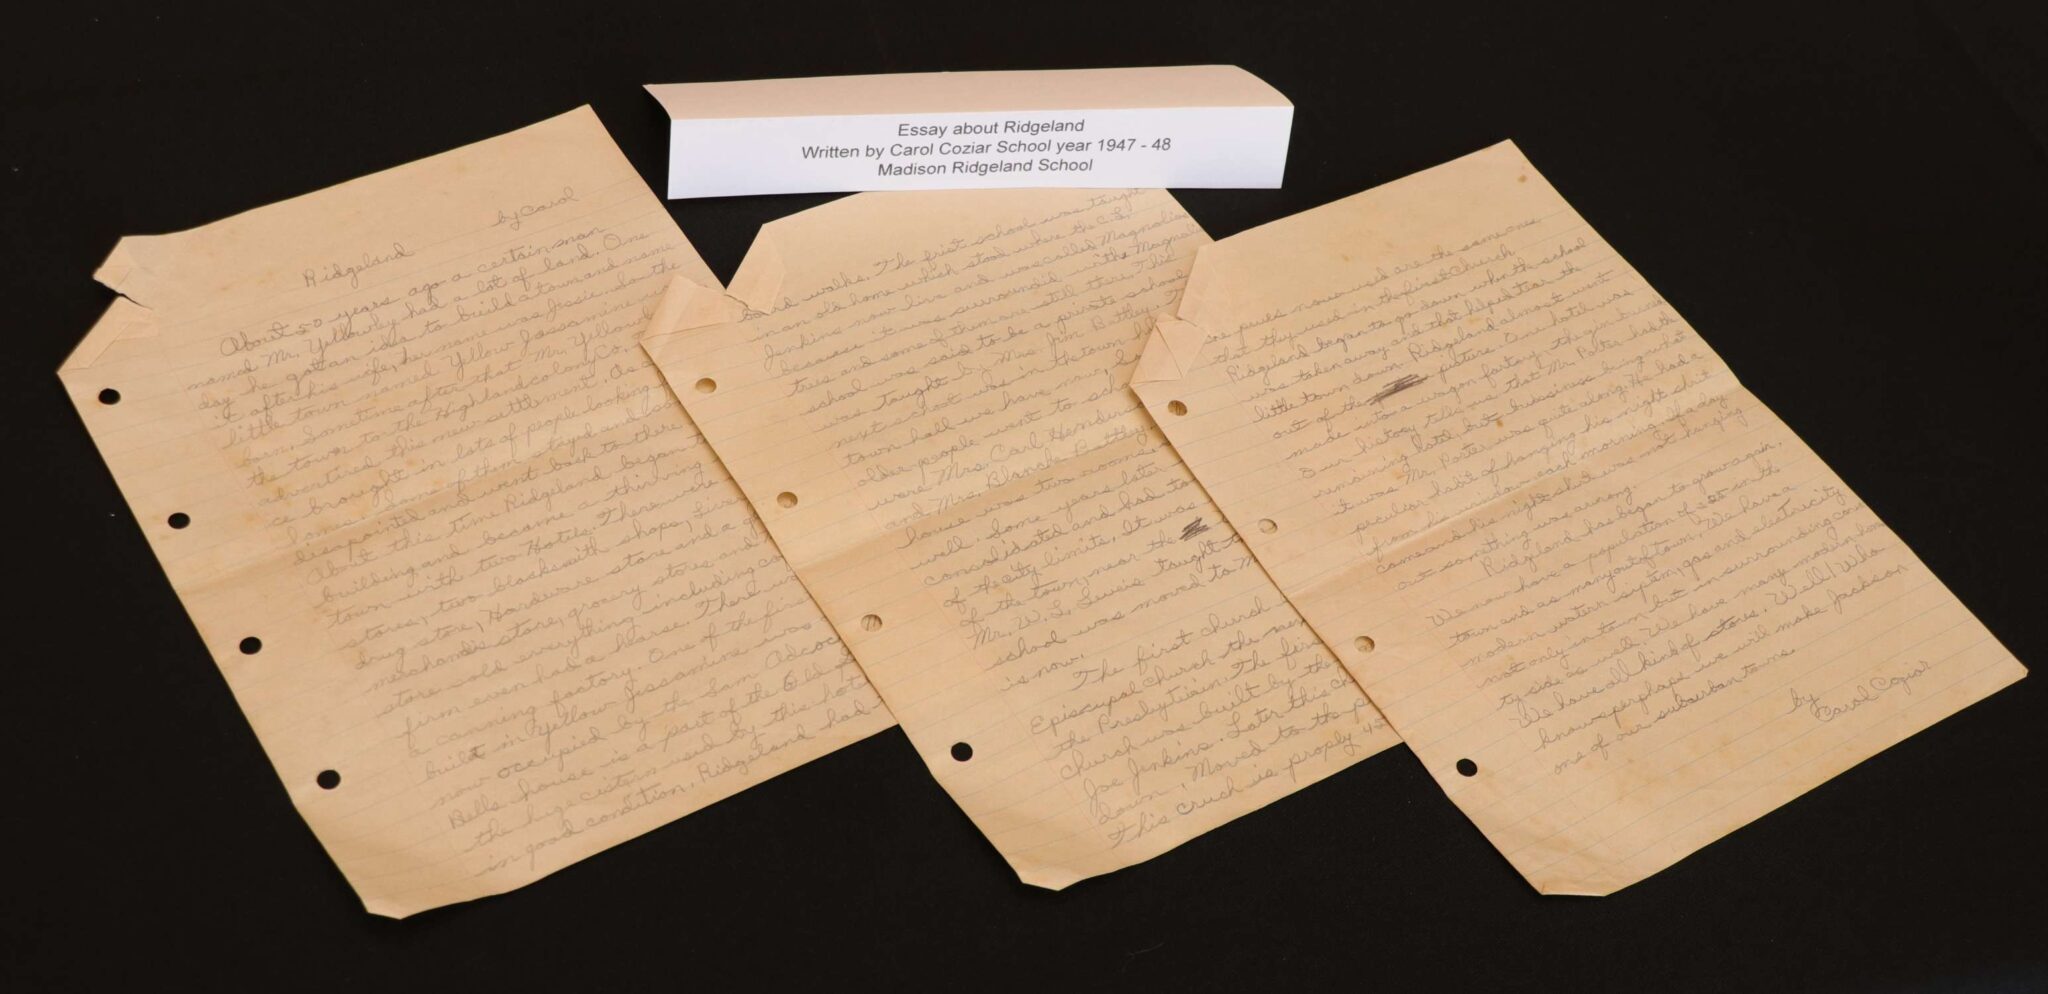 Essay about Ridgeland
Written by Carol Coziar School year 1947 - 48
Madison Ridgeland School
Ridgeland by Carol
About 50 years ago a certain man
named Mr. Yellowley had a lot of land. One
day he got an idea to build a town and name
it after his wife, her name was Jessie. So the
little town named Yellow Jessamine was
born. Sometime after that Mr. Yellowl
the town to the Highland colony Co.
advertized, this new settlement. As
ce brought in lots of people looking
homes. Some of them stayd and so
disapointed and went back to there
About this time Ridgeland began
building and became a thinving
town with two Hotels. There were
stores, two blacksmith shops, live
drug store, Hardware store and a g
merchandise store, grocery stores and
store sold everything including co
firm even had a hearse. There wa
a canning factory. One of the first
built in Yellow Jessamine was
now ocupied by the Sam Adcoc
Bells house is a part of the Old
the huge cistern used by this hote
in good condition. Ridgeland had
board walks. The frist school was taught
in an old home which stood where the C.L.
Jenkins now live and was called Magnolia
because it was surroundid with Magnolia
trees and some of them are still there. This
school was said to be a private school
was taught by Mrs. Jim Battley. T
next school was in the town h
town hall we have now, S
older people went to sch
were Mrs. Carl Henders
and Mrs. Blanche Battley
house was two rooms
well. Some years later
consolidated and had to
of the city limits. It was
of the town, near the
Mr. W. L. Lewis taught t
school was moved to M
is now.
The first church
Episcupal Church the
the Presbytirian. The firs
church was built by the
Joe Jenkins. Later this ch
down, Moved to the p
This cruch is proply 45
The pews now used are the same ones
that they used in the first Church.
Ridgeland began to go down when the school
was taken away and that helped tear the
little town down. Ridgeland almost went
out of the picture. One hotel was
made into a wagon factory, the gin burned
Our history tells us that Mr. Porter had the
remaining hotel, but buisiness being what
it was Mr. Porter was quite along. He had a
peculiar habit of hanging his night shirt
from his window each morning. If a day
came and his night shirt was not hanging
out something was wrong.
Ridgland has began to grow again.
We now have a population of in the
town and as many out of town. We have a
modern watern system, gas and electricity
not only in town but in surrounding coun
ty side as well. We have many modern hom
We have all kind of stores. Well! Who
knows perhaps we will make Jackson
one of our suburban towns.
by
Carol Coziar